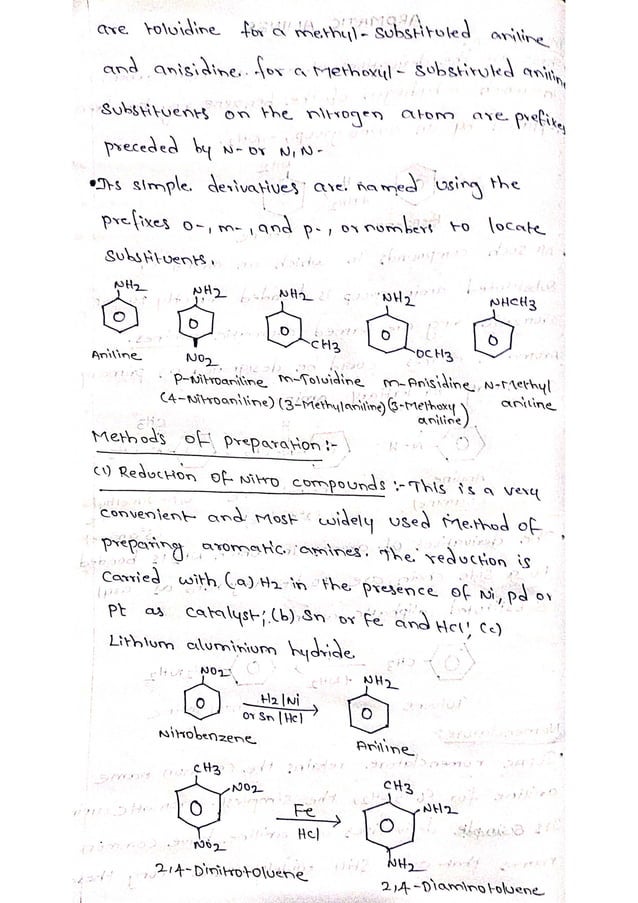 are toluidine for a methyl-substituted aniline
and anisidine for a Methoxyl - substituted anilin
substituents on the nitrogen atom are prefixe
preceded by N- or N,N-
•Its simple derivatives are named using the
prefixes o-, m-, and p-, or numbers to locate
substituents.
NH2 NH2 NH2 NH2 NHCH3
CH3 OCH3
Aniline NO2
P-Nitroaniline m-Toluidine m-Anisidine N-Methyl
(4-Nitroaniline) (3-Methylaniline) (3-Methoxy aniline
aniline)
Methods of preparation:-
(1) Reduction of Nitro compounds :- This is a very
convenient and Most widely used Method of
preparing aromatic amines. The reduction is
Carried with (a) H2 in the presence of Ni, pd or
Pt as catalyst; (b) Sn or Fe and HCl; (c)
Lithium aluminium hydride
NO2 NH2
H2/Ni
or Sn/Hcl
Nitrobenzene Aniline
CH3 CH3
NO2 NH2
Fe
HCl
NO2 NH2
2,4-Dinitrotoluene 2,4-Diaminotoluene